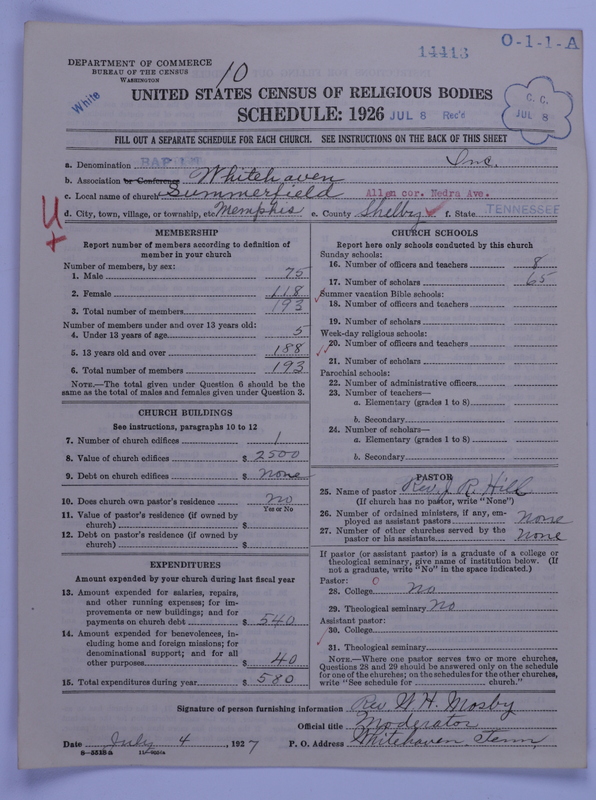 14413 O-1-1-A
DEPARTMENT OF COMMERCE
BUREAU OF THE CENSUS
WASHINGTON
10
White
UNITED STATES CENSUS OF RELIGIOUS BODIES
SCHEDULE: 1926 JUL 8 Rec'd
C. C.
JUL 8
FILL OUT A SEPARATE SCHEDULE FOR EACH CHURCH. SEE INSTRUCTIONS ON THE BACK OF THIS SHEET
a. Denomination BAPTIST Inc.
b. Association or Conference Whitehaven
c. Local name of church Summerfield Allen cor. Hedra Ave.
d. City, town, village, or township, etc. Memphis e. County Shelby f. State TENNESSEE
MEMBERSHIP
Report number of members according to definition of
member in your church
Number of members, by sex:
1. Male 75
2. Female 118
3. Total number of members 193
Number of members under and over 13 years old:
4. Under 13 years of age 5
5. 13 years old and over 188
6. Total number of members 193
NOTE.—The total given under Question 6 should be the
same as the total of males and females given under Question 3.
CHURCH BUILDINGS
See instructions, paragraphs 10 to 12
7. Number of church edifices 1
8. Value of church edifices $ 2500
9. Debt on church edifices $ none
10. Does church own pastor's residence no
Yes or No
11. Value of pastor's residence (if owned by
church) $
12. Debt on pastor's residence (if owned by
church) $
EXPENDITURES
Amount expended by your church during last fiscal year
13. Amount expended for salaries, repairs,
and other running expenses; for im-
provements or new buildings; and for
payments on church debt $ 540
14. Amount expended for benevolences, in-
cluding home and foreign missions; for
denominational support; and for all
other purposes $ 40
15. Total expenditures during year $ 580
CHURCH SCHOOLS
Report here only schools conducted by this church
Sunday schools:
16. Number of officers and teachers 8
17. Number of scholars 65
Summer vacation Bible schools:
18. Number of officers and teachers
19. Number of scholars
Week-day religious schools:
20. Number of officers and teachers
21. Number of scholars
Parochial schools:
22. Number of administrative officers
23. Number of teachers—
a. Elementary (grades 1 to 8)
b. Secondary
24. Number of scholars—
a. Elementary (grades 1 to 8)
b. Secondary
PASTOR
25. Name of pastor Rev. J. R. Hill
(If church has no pastor, write "None")
26. Number of ordained ministers, if any, em-
ployed as assistant pastors none
27. Number of other churches served by the
pastor or his assistants none
If pastor (or assistant pastor) is a graduate of a college or
theological seminary, give name of institution below. (If
not a graduate, write "No" in the space indicated.)
Pastor:
28. College no
29. Theological seminary no
Assistant pastor:
30. College
31. Theological seminary
NOTE.—Where one pastor serves two or more churches,
Questions 28 and 29 should be answered only on the schedule
for one of the churches; on the schedules for the other churches,
write "See schedule for church."
Signature of person furnishing information Rev. W. H. Mosby
Official title Moderator
Date July 4, 1927 P. O. Address Whitehaven, Tenn,
8—5518a